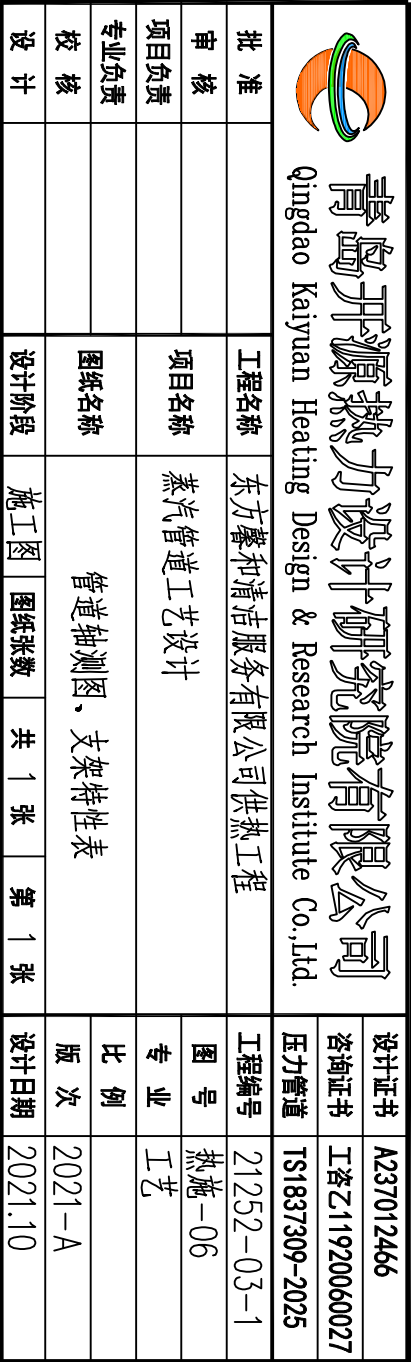 青岛开源热力设计研究院有限公司
Qingdao Kaiyuan Heating Design & Research Institute Co.,Ltd.
设计证书 A237012466
咨询证书 工咨乙11920060027
压力管道 TS1837309-2025
批 准 工程名称 东方馨和清洁服务有限公司供热工程 工程编号 21252-03-1
审 核 项目名称 蒸汽管道工艺设计 图 号 热施-06
项目负责 专 业 工艺
专业负责 图纸名称 管道轴测图、支架特性表 比 例
校 核 版 次 2021-A
设 计 设计阶段 施工图 图纸张数 共 1 张 第 1 张 设计日期 2021.10